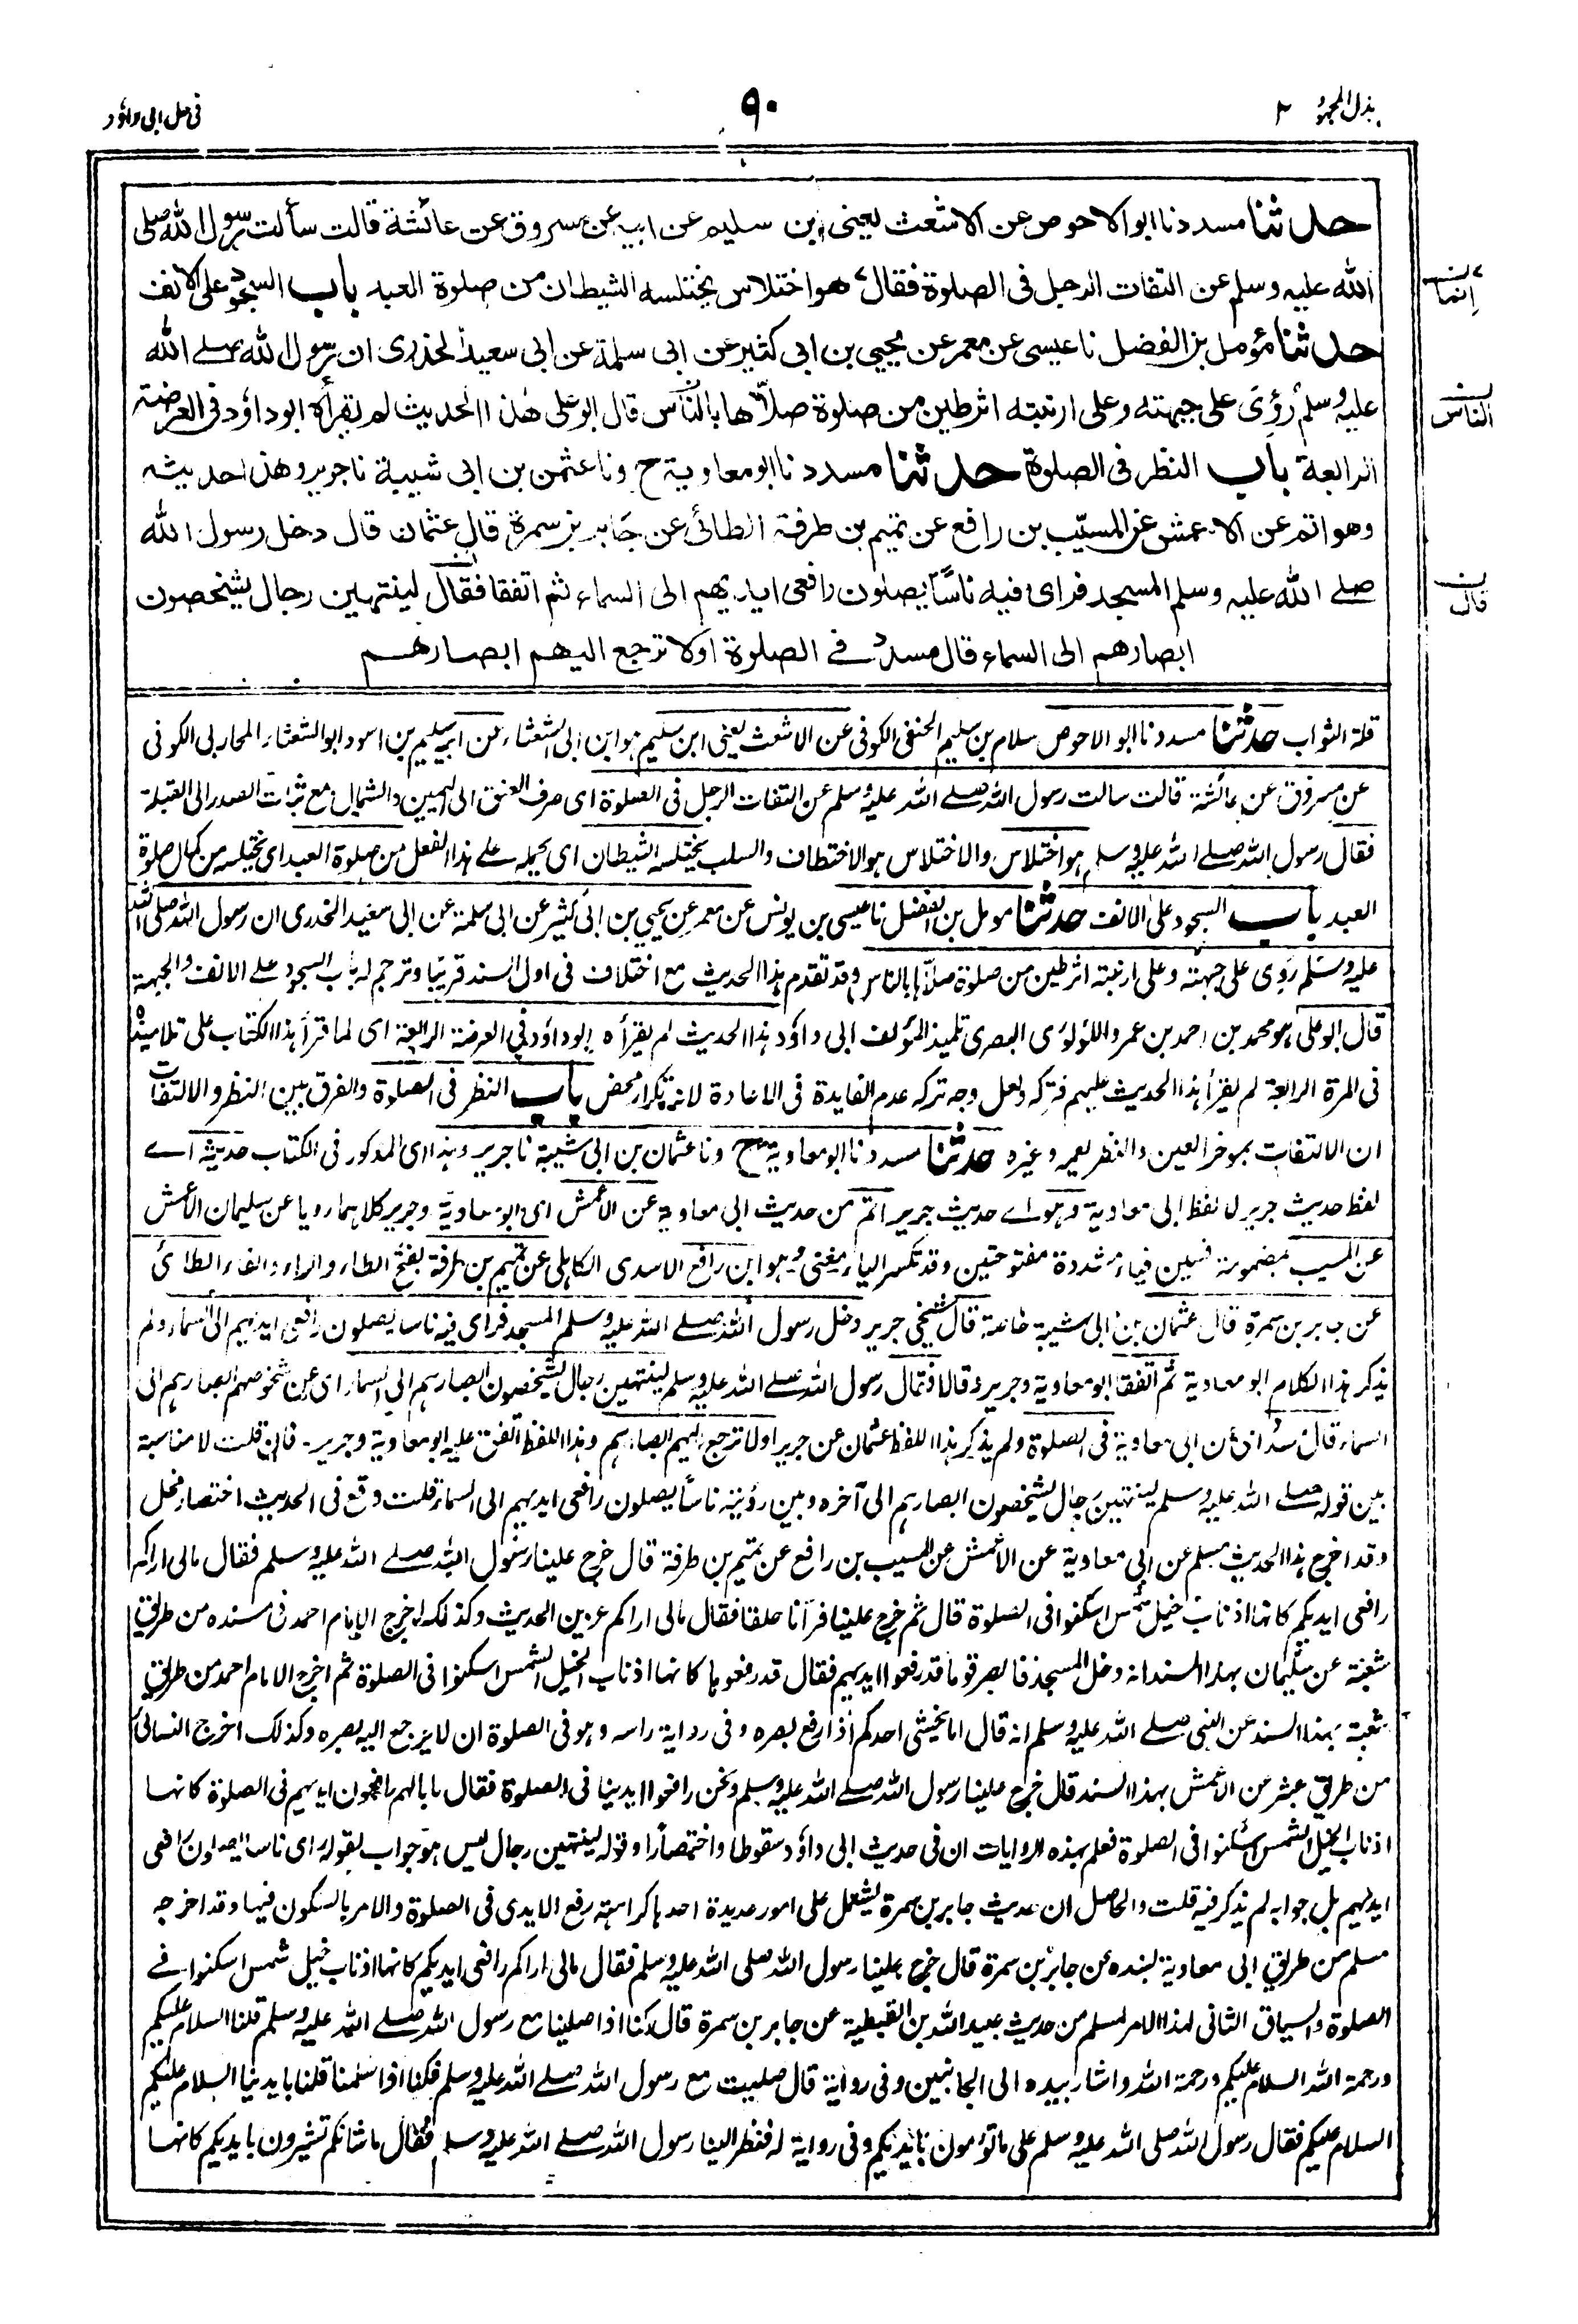 بذل المجهود ٢
٩٠
فی حل ابی داؤد
حدثنا مسدد نا ابو الاحوص عن الاشعث یعنی ابن سلیم عن ابیه عن مسروق عن عائشة قالت سألت رسول الله صلی
الله علیه وسلم عن التفات الرجل فی الصلوة فقال هو اختلاس یختلسه الشیطان من صلوة العبد باب السجود علی الانف
حدثنا مؤمل بن الفضل نا عیسی عن معمر عن یحیی بن ابی کثیر عن ابی سلمة عن ابی سعید الخدری ان رسول الله صلے الله
علیه وسلم رؤی علی جبهته وعلی ارنبته اثر طین من صلوة صلاها بالناس قال ابو علی هذا الحدیث لم یقرأه ابو داؤد فی العرضة
الرابعة باب النظر فی الصلوة حدثنا مسدد نا ابو معاویة ح ونا عثمن بن ابی شیبة نا جریر وهذا حدیثه
وهو اتم عن الاعمش عن المسیّب بن رافع عن تمیم بن طرفة الطائی عن جابر بن سمرة قال عثمان قال دخل رسول الله
صلے الله علیه وسلم المسجد فرای فیه ناسًا یصلون رافعی ایدیهم الی السماء ثم اتفقا فقال لینتهین رجال یشخصون
ابصارهم الی السماء قال مسدد فے الصلوة اولا ترجع الیهم ابصارهم
انما
الناس
قال
قلة الثواب حدثنا مسدد نا ابو الاحوص سلام بن سلیم الحنفی الکوفی عن الاشعث یعنی ابن سلیم هو ابن ابی الشعثاء عن ابیه سلیم بن اسود ابو الشعثاء المحاربی الکوفی
عن مسروق عن عائشة قالت سالت رسول الله صلے الله علیه وسلم عن التفات الرجل فی الصلوة ای صرف العنق الی الیمین والشمال مع ثبات الصدر الی القبلة
فقال رسول الله صلے الله علیه وسلم هو اختلاس والاختلاس هو الاختطاف والسلب یختلسه الشیطان ای یحمله علے هذا الفعل من صلوة العبد ای یختلسه من کمال صلوة
العبد باب السجود علی الانف حدثنا مومل بن الفضل نا عیسی بن یونس عن معمر عن یحیی بن ابی کثیر عن ابی سلمة عن ابی سعید الخدری ان رسول الله صلی الله
علیه وسلم رؤی علی جبهته وعلی ارنبته اثر طین من صلوة صلاها بالناس وقد تقدم هذا الحدیث مع اختلاف فی اول السند قریبا وترجم له باب السجود علے الانف والجبهة
قال ابو علی هو محمد بن احمد بن عمرو اللؤلؤی البصری تلمیذ المؤلف ابی داؤد هذا الحدیث لم یقرأه ابو داؤد فی العرضة الرابعة ای لما قرأ هذا الکتاب علی تلامیذه
فی المرة الرابعة لم یقرأ هذا الحدیث علیهم فترکه ولعل وجه ترکه عدم الفایدة فی الاعادة لانه تکرار محض باب النظر فی الصلوة والفرق بین النظر والالتفات
ان الالتفات بموخر العین والنظر یعمه وغیره حدثنا مسدد نا ابو معاویة ح ونا عثمان بن ابی شیبة نا جریر وهذا ای المذکور فی الکتاب حدیثه اے
لفظ حدیث جریر لا لفظ ابی معاویة وهو اے حدیث جریر اتم من حدیث ابی معاویة عن الاعمش ای ابو معاویة وجریر کلاهما رویا عن سلیمان الاعمش
عن المسیب بمضمومة فسین فیاء مشددة مفتوحتین وقد تکسر الیاء مغنی وهو ابن رافع الاسدی الکاهلی عن تمیم بن طرفة بفتح الطاء والراء والفاء الطائی
عن جابر بن سمرة قال عثمان بن ابی شیبة خاصة قال شیخی جریر دخل رسول الله صلے الله علیه وسلم المسجد فرای فیه ناسا یصلون رافعی ایدیهم الی السماء ولم
یذکر هذا الکلام ابو معاویة ثم اتفقا ابو معاویة وجریر وقالا فقال رسول الله صلے الله علیه وسلم لینتهین رجال یشخصون ابصارهم الی السماء ای عن شخوصهم ابصارهم الی
السماء قال مسدد ان ابی معاویة فی الصلوة ولم یذکر هذا اللفظ عثمان عن جریر اولا ترجع الیهم ابصارهم وهذا اللفظ اتفق علیه ابو معاویة وجریر۔ فان قلت لا مناسبة
بین قوله صلے الله علیه وسلم لینتهین رجال یشخصون ابصارهم الی آخره وبین رؤیته ناسا یصلون رافعی ایدیهم الی السماء قلت وقع فی الحدیث اختصار مخل
وقد اخرج هذا الحدیث مسلم عن ابی معاویة عن الاعمش عن المسیب بن رافع عن تمیم بن طرفة قال خرج علینا رسول الله صلے الله علیه وسلم فقال مالی اراکم
رافعی ایدیکم کانها اذناب خیل شمس اسکنوا فی الصلوة قال ثم خرج علینا فرآنا حلقا فقال مالی اراکم عزین الحدیث وکذلک اخرج الامام احمد فی مسنده من طریق
شعبة عن سلیمان بهذا السند انه دخل المسجد فابصر قوما قد رفعوا ایدیهم فقال قد رفعوها کانها اذناب الخیل الشمس اسکنوا فی الصلوة ثم اخرج الامام احمد من طریق
شعبة بهذا السند عن النبی صلے الله علیه وسلم انه قال اما یخشی احدکم اذا رفع بصره وفی روایة راسه وهو فی الصلوة ان لا یرجع الیه بصره وکذلک اخرج النسائی
من طریق عبثر عن الاعمش بهذا السند قال خرج علینا رسول الله صلے الله علیه وسلم ونحن رافعوا ایدینا فی الصلوة فقال ما بالهم رافعون ایدیهم فی الصلوة کانها
اذناب الخیل الشمس اسکنوا فی الصلوة فعلم بهذه الروایات ان فی حدیث ابی داؤد سقوطا واختصارا وقوله لینتهین رجال لیس هو جواب لقوله ای ناسا یصلون رافعی
ایدیهم بل جوابه لم یذکر فیه قلت والحاصل ان حدیث جابر بن سمرة یشتمل علی امور عدیدة احدها کراهة رفع الایدی فی الصلوة والامر بالسکون فیها وقد اخرجه
مسلم من طریق ابی معاویة بسنده عن جابر بن سمرة قال خرج علینا رسول الله صلی الله علیه وسلم فقال مالی اراکم رافعی ایدیکم کانها اذناب خیل شمس اسکنوا فے
الصلوة والسیاق الثانی لهذا الامر لمسلم من حدیث عبید الله بن القبطیة عن جابر بن سمرة قال کنا اذا صلینا مع رسول الله صلے الله علیه وسلم قلنا السلام علیکم
ورحمة الله السلام علیکم ورحمة الله واشار بیده الی الجانبین وفی روایة قال صلیت مع رسول الله صلے الله علیه وسلم فکنا اذا سلمنا قلنا بایدینا السلام علیکم
السلام علیکم فقال رسول الله صلی الله علیه وسلم علی ما تؤمون بایدیکم وفی روایة له فنظر الینا رسول الله صلے الله علیه وسلم فقال ما شانکم تشیرون بایدیکم کانها